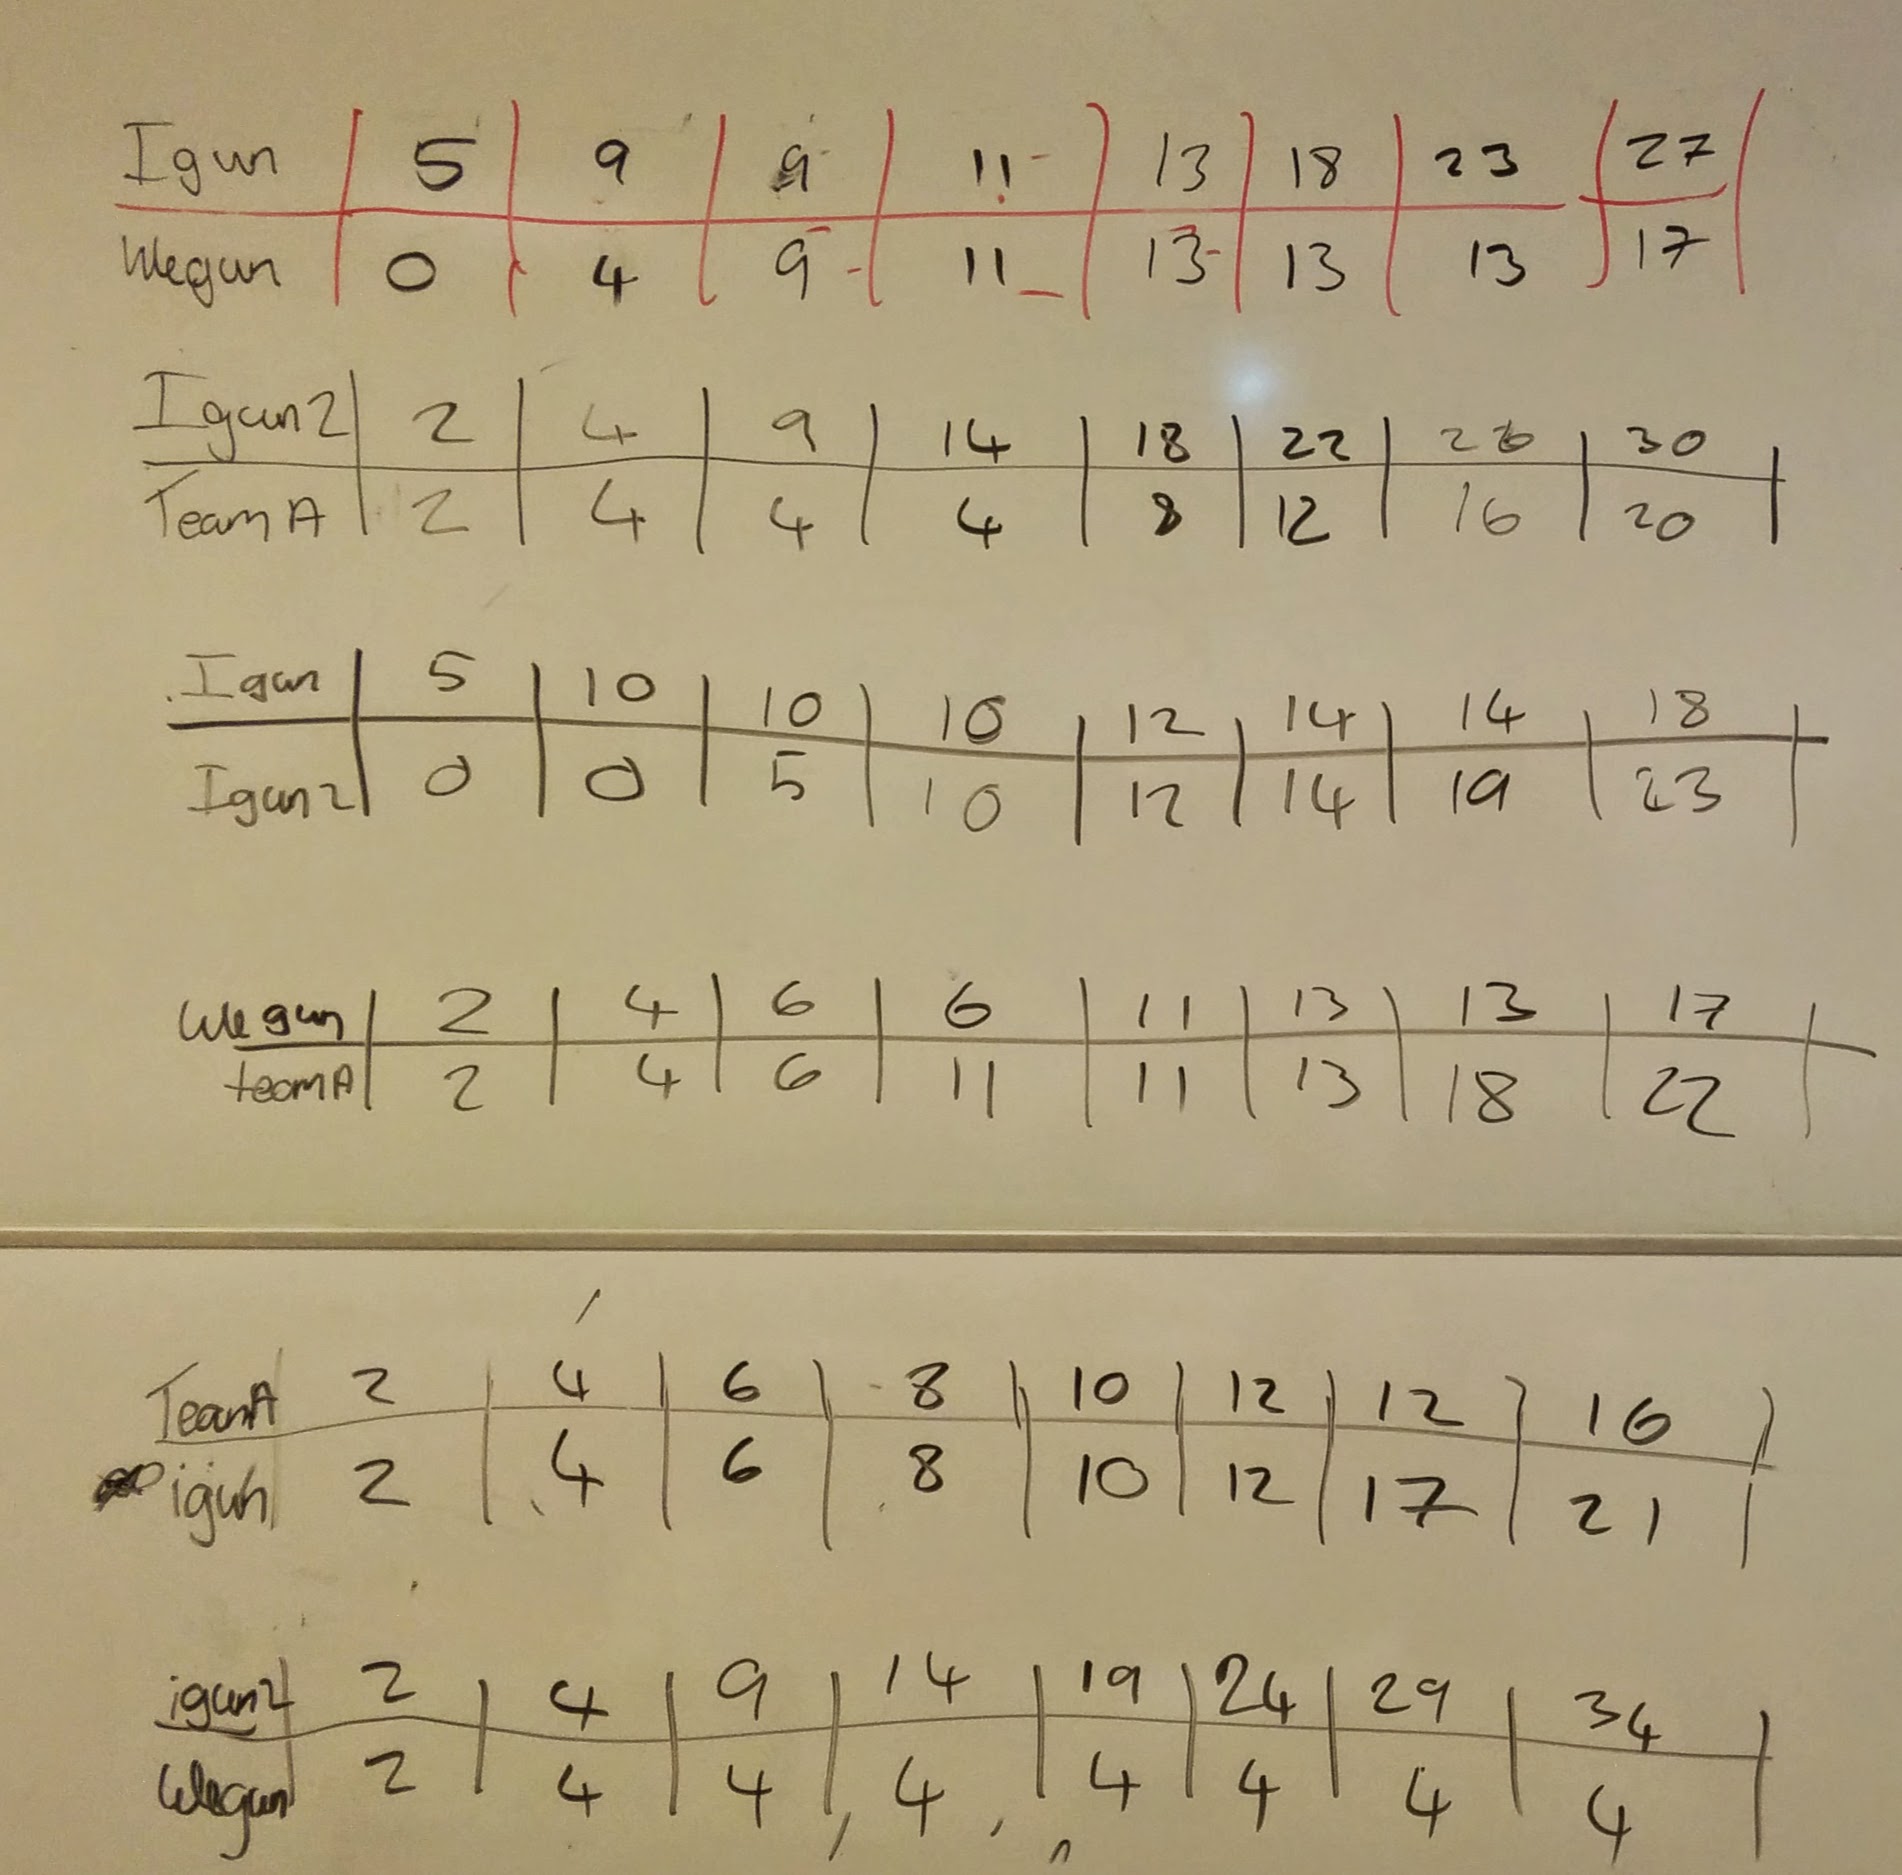 Igun 5 9 9 11 13 18 23 27
Wegun 0 4 9 11 13 13 13 17
Igun2 2 4 9 14 18 22 26 30
Team A 2 4 4 4 8 12 16 20
Igun 5 10 10 10 12 14 14 18
Igun2 0 0 5 10 12 14 19 23
Wegun 2 4 6 6 11 13 13 17
teamA 2 4 6 11 11 13 18 22
TeamA 2 4 6 8 10 12 12 16
igun 2 4 6 8 10 12 17 21
igun2 2 4 9 14 19 24 29 34
Wegun 2 4 4 4 4 4 4 4